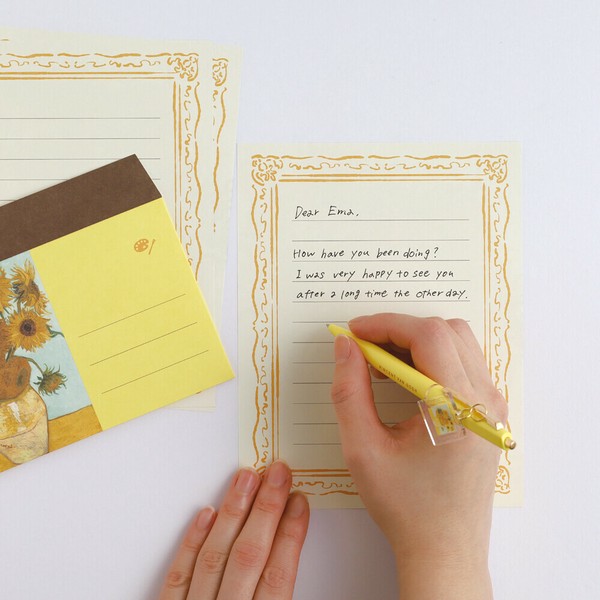 Dear Ema,
How have you been doing?
I was very happy to see you
after a long time the other day.